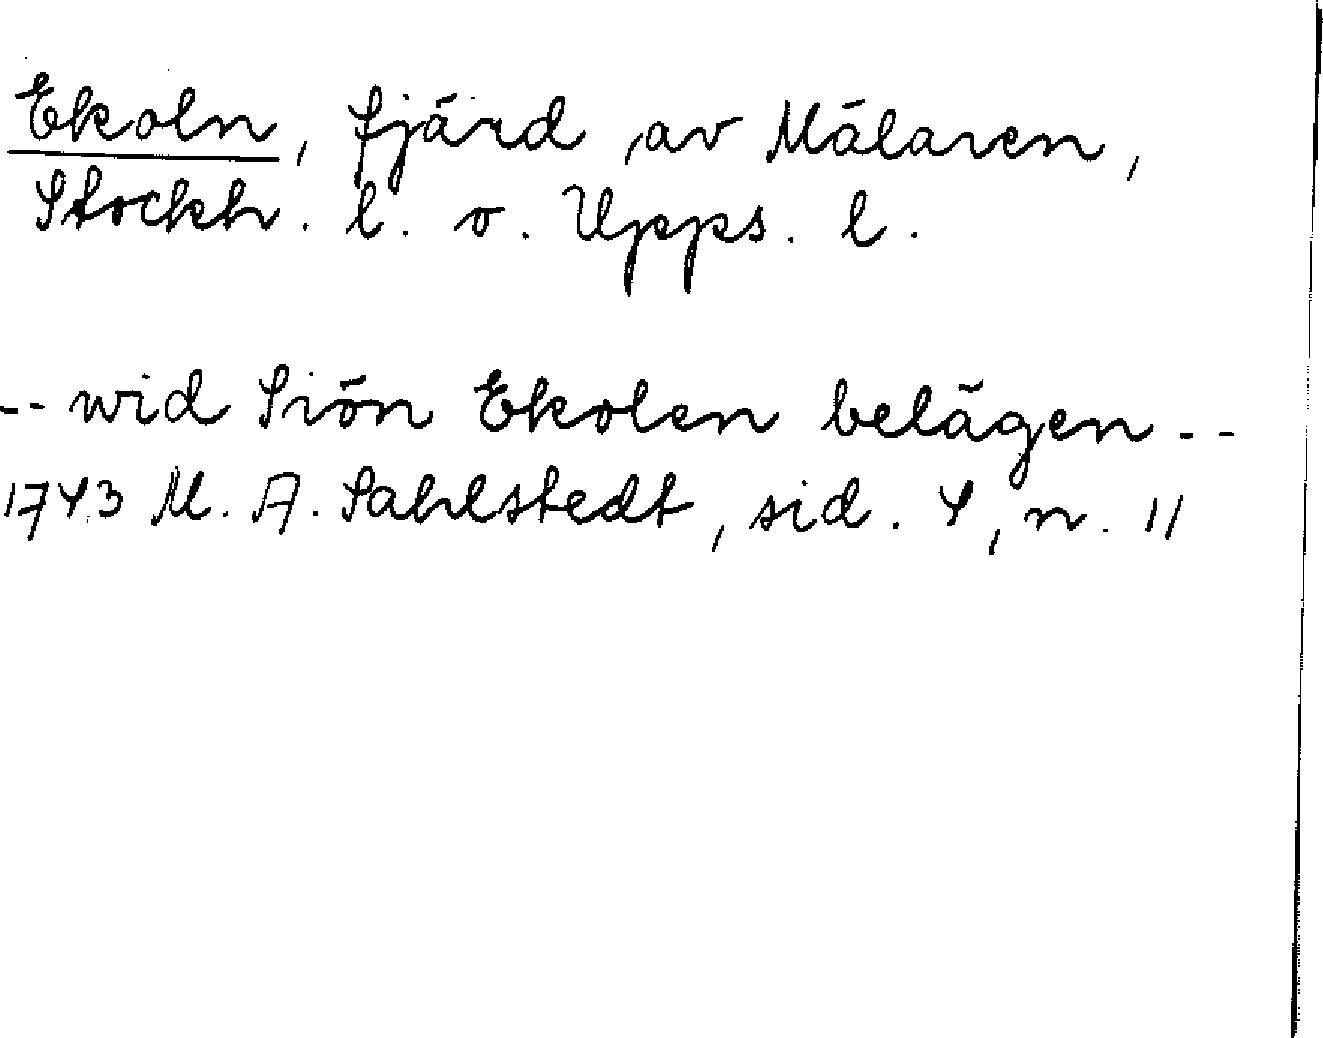 Ekoln, fjärd av Mälaren,
Stockh. l. o. Upps. l.
-- wid Siön Ekolen belägen --
1743 M. A. Sahlstedt, sid. 4, n. 11